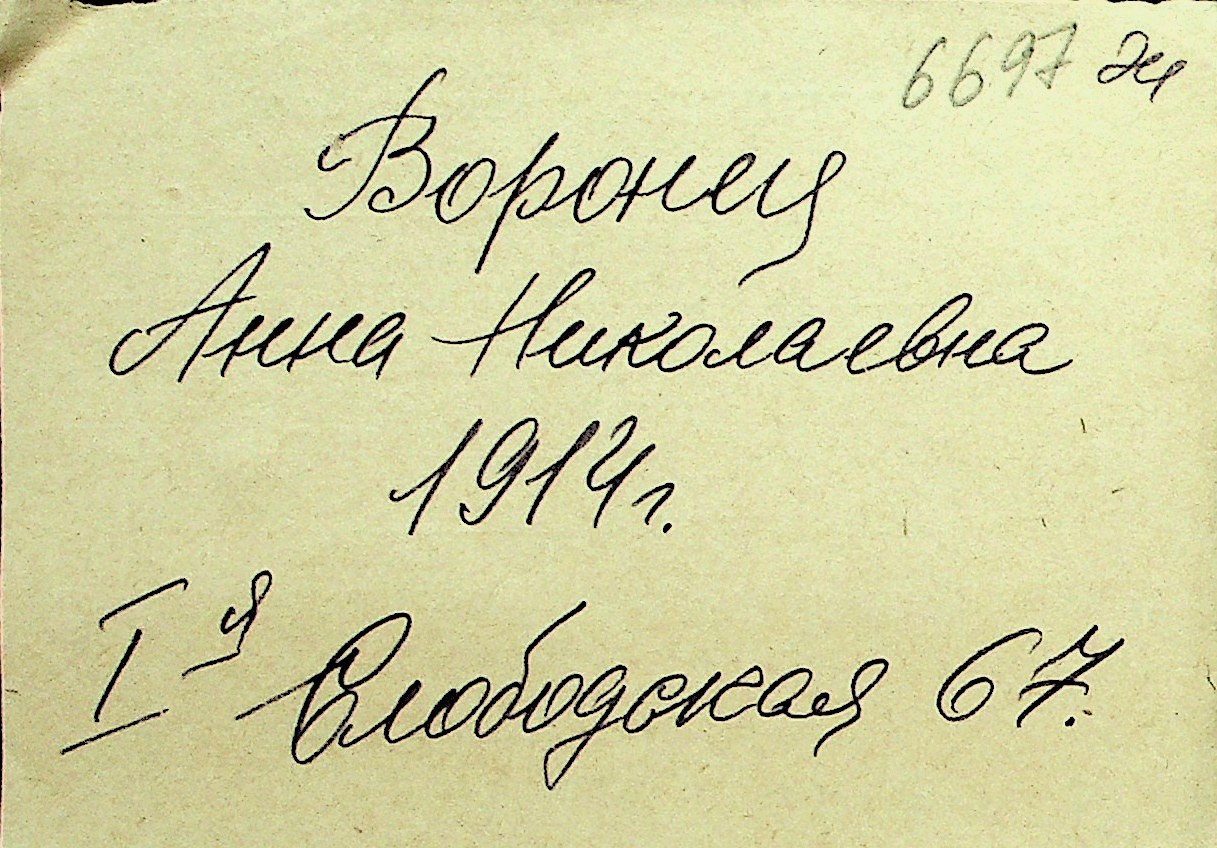 6697
Воронец
Анна Николаевна
1914 г.
I я Слободская 67.